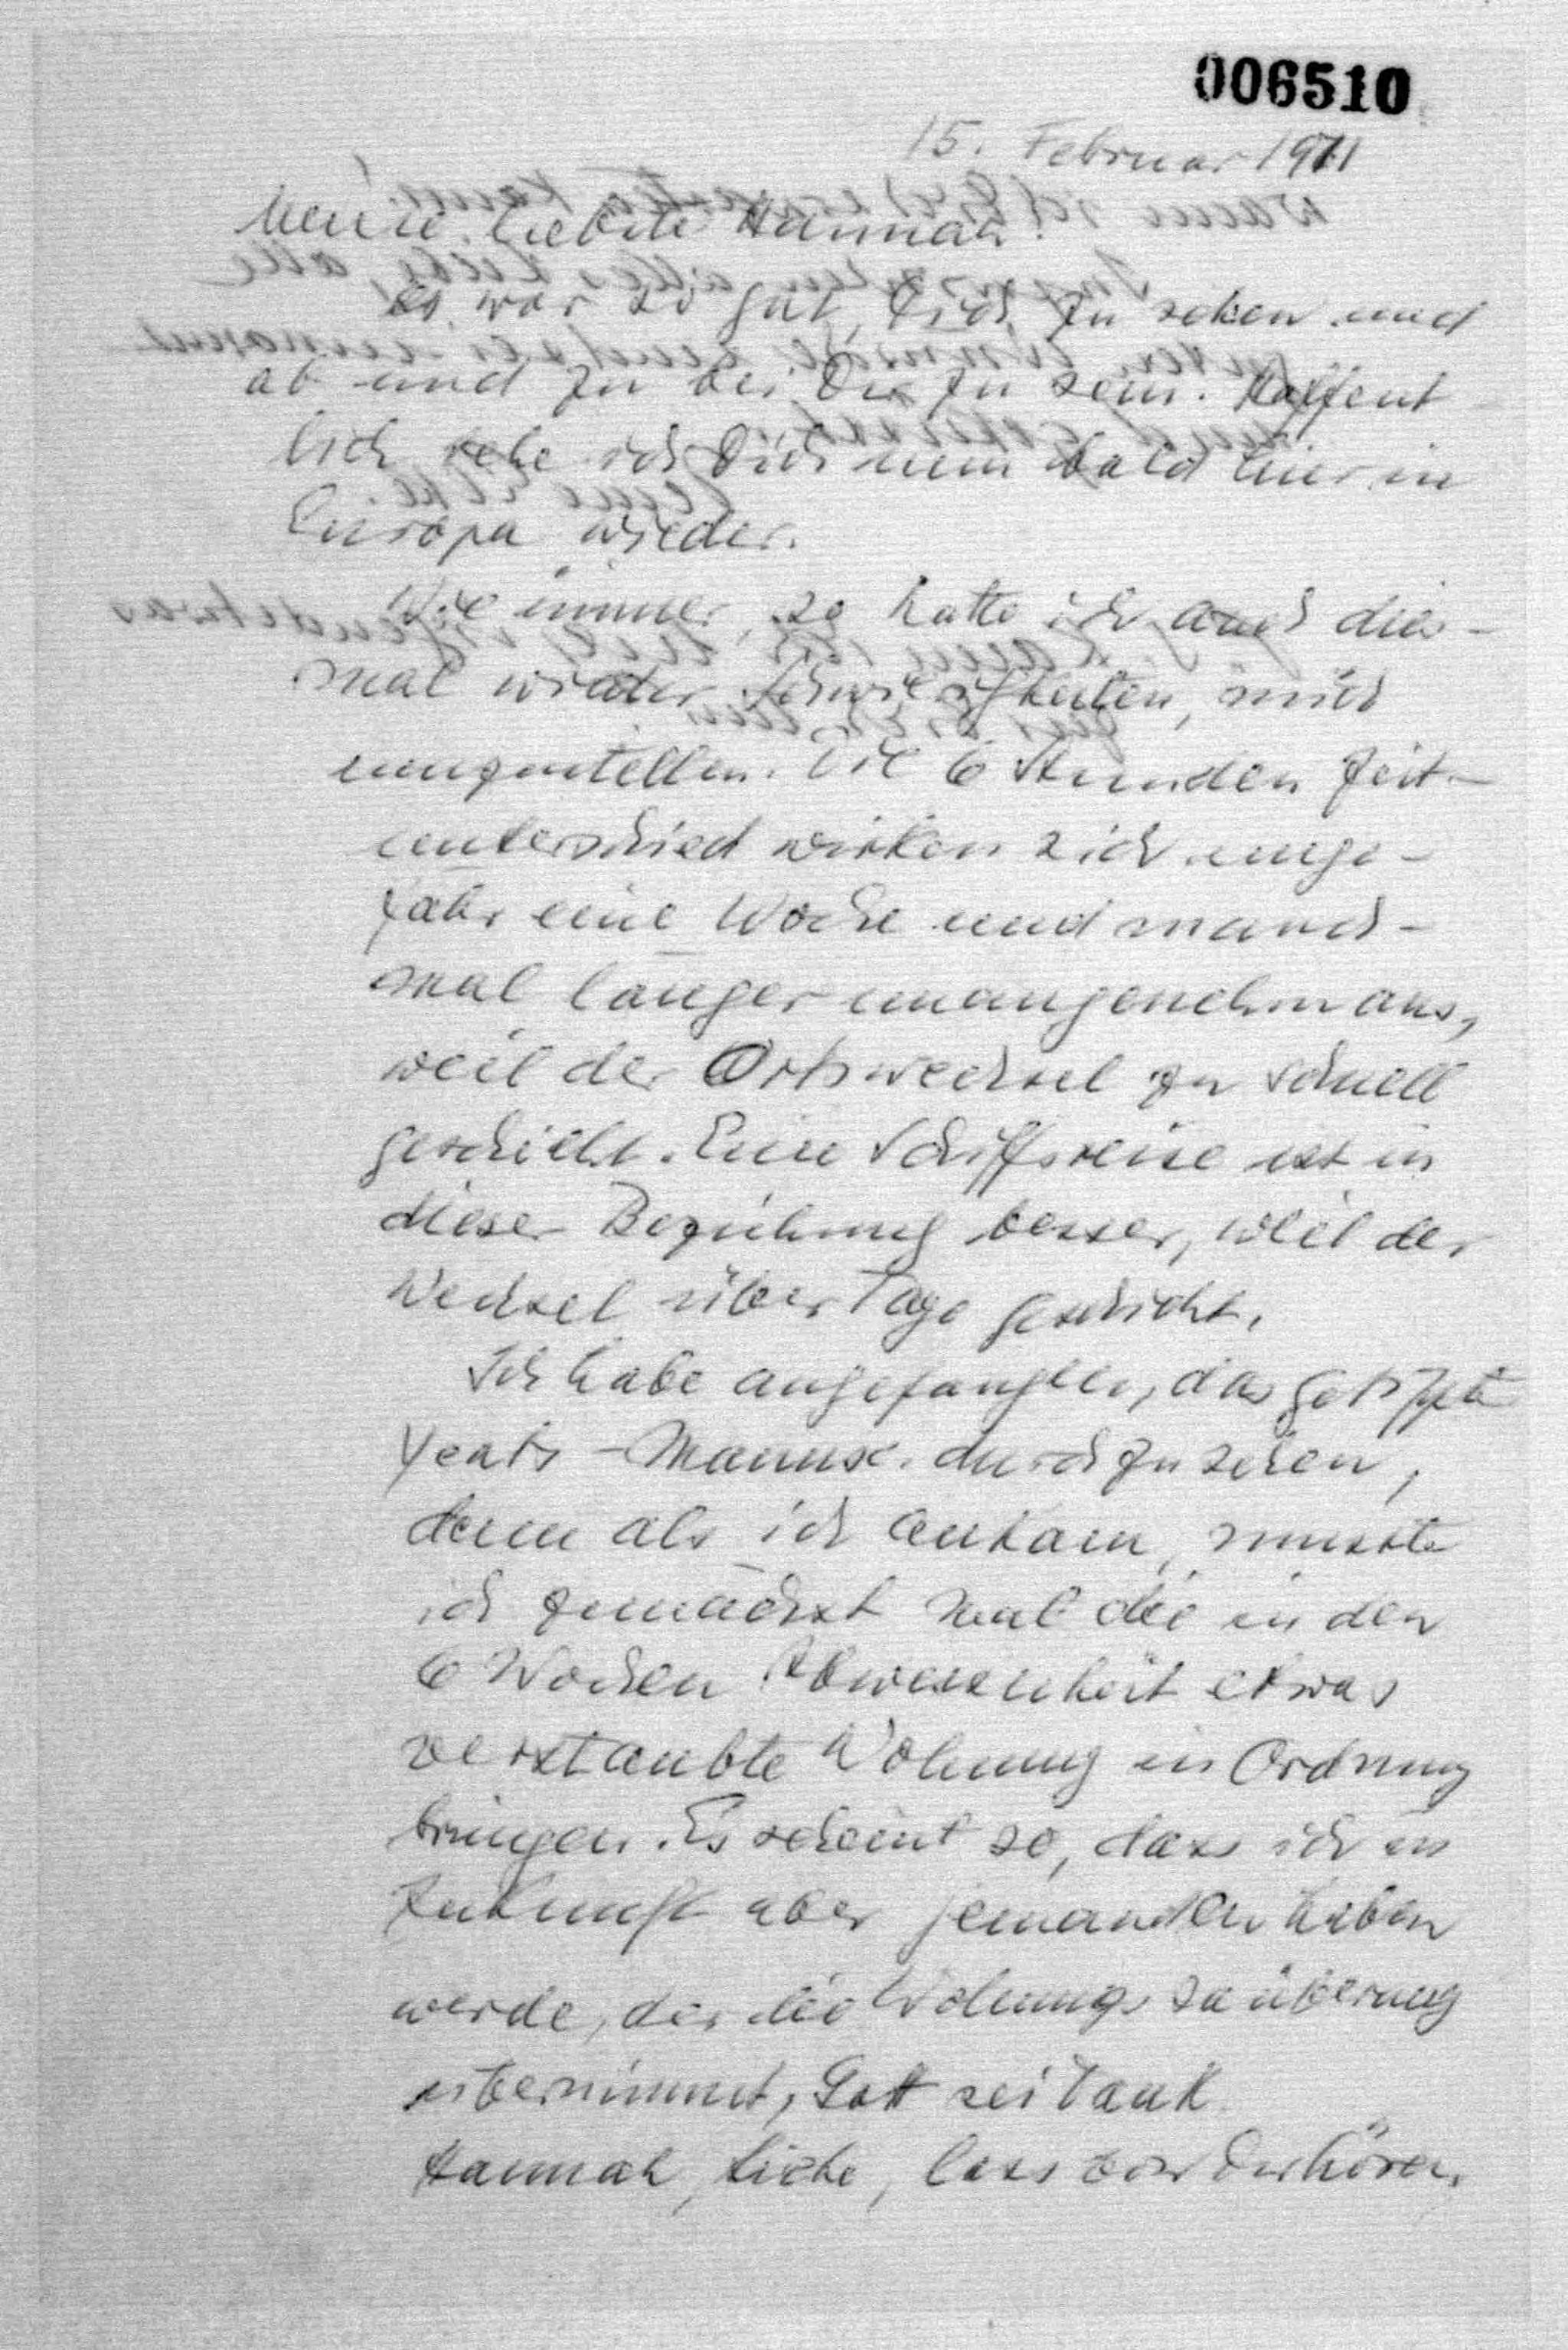 006510
15. Februar 1971
Meine liebste Hannah!
Es war so gut, Dich zu sehen und
ab und zu bei Dir zu sein. Hoffent-
lich sehe ich Dich nun bald hier in
Europa wieder.
Wie immer, so hatte ich auch dies-
mal wieder Schwierigkeiten, mich
umzustellen. Die 6 Stunden Zeit-
unterschied wirken sich unge-
fähr eine Woche und manch-
mal länger unangenehm aus,
weil der Ortswechsel zu schnell
geschieht. Eine Schiffsreise ist in
dieser Beziehung besser, weil der
Wechsel über Tage geschieht.
Ich habe angefangen, das getippte
Yeats-Manusc. durchzusehen,
denn als ich ankam, musste
ich zunächst mal die in den
6 Wochen Abwesenheit etwas
verstaubte Wohnung in Ordnung
bringen. Es scheint so, dass ich in
Zukunft aber jemanden haben
werde, der die Wohnungssäuberung
übernimmt, Gott sei Dank.
Hannah, Liebe, lass von Dir hören,